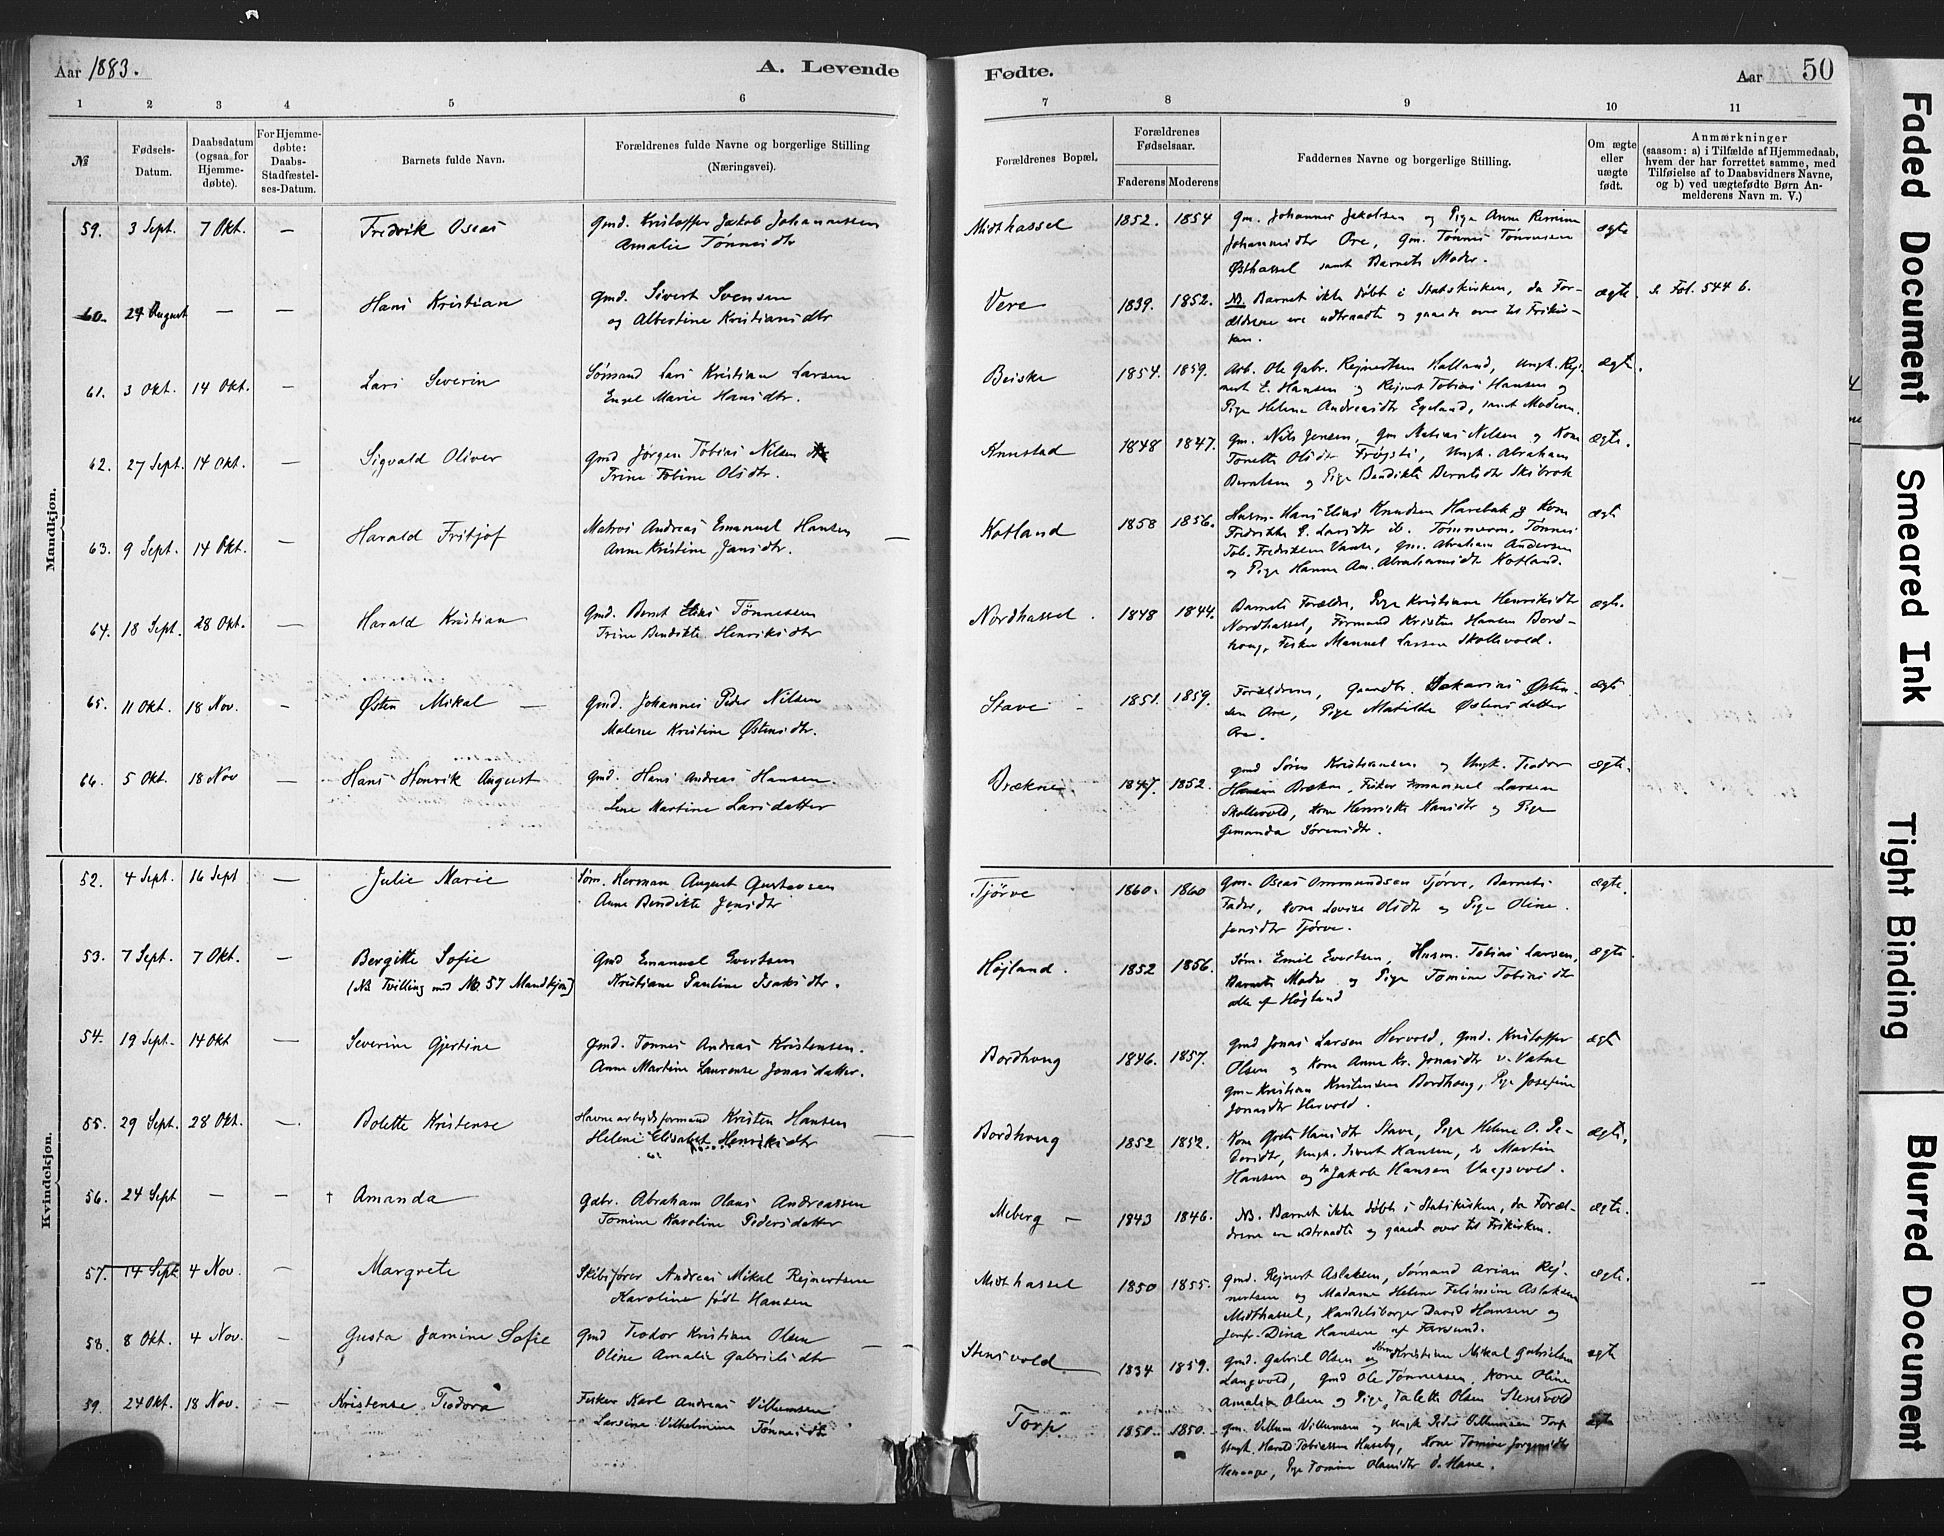 Aar 1883.
A. Levende Fødte.
Aar 50
1 2 3 4 5 6 7 8 9 10 11
№
Fødsels-Datum.
Daabsdatum (ogsaa for Hjemme-døbte).
For Hjemme-døbte: Daabs-Stadfæstel-ses-Datum.
Barnets fulde Navn.
Forældrenes fulde Navne og borgerlige Stilling
(Næringsvei).
Forældrenes Bopæl.
Forældrenes Fødselsaar.
Faderens Moderens
Faddernes Navne og borgerlige Stilling.
Om ægte eller uægte født.
Anmærkninger
(saasom: a) i Tilfælde af Hjemmedaab,
hvem der har forrettet samme, med
Tilføielse af to Daabsvidners Navne,
og b) ved uægtefødte Børn An-
melderens Navn m. V.)
Mandkjøn.
59. 3 Sept. 7 Okt. — Fredrik Oseas Gmd. Kristoffer Jakob Johannessen
Amalie Tønnesdtr
Midthassel 1852. 1854 Gm. Johannes Jakobsen og Pige Anne
Johannesdtr Ore, Gm. Tønnes Tønnessen
Østhassel samt Barnets Moder.
ægte
60. 29 August — — Hans Kristian Gmd. Sivert Svensen
og Albertine Kristiansdtr
Vere 1839. 1852. NB. Barnet ikke døbt i Statskirken, da For-
ældrene ere udtraadte og gaaede over til Frikir-
ken.
ægte S. Fol. 544 b.
61. 3 Okt. 14 Okt. — Lars Severin Sømand Lars Kristian Larsen
Engel Marie Hansdtr.
Briske 1854. 1859. Arb. Ole Gabr. Rejnertsen Halland, Ungk. Rej-
nert E. Hansen og Rejnert Tobias Hansen og
Pige Helene Andreasdtr Egeland, samt Moderen.
ægte.
62. 27 Sept. 14 Okt. — Sigvald Oliver Gmd Jørgen Tobias Nilsen
Trine Tobine Olsdtr.
Knustad 1848 1847. Gm. Nils Jensen, Gm Matias Nelsen og Kone
Tonette Olsdtr Frøysti, Ungk. Abraham
Berntsen og Pige Bendikte Berntsdtr Skibrok
ægte.
63. 9 Sept. 14 Okt. — Harald Fritjof Matros Andreas Emanuel Hansen
Anne Kristine Jansdtr.
Kotland 1858 1856. Husm. Hans Elias Knudsen Harebak og Kone
Fredrikke E. Larsdtr ib. Tømmerm. Tønnes
Tob. Fredriksen Vanse, Gm. Abraham Andersen
og Pige Hanna Am. Abrahamsdtr Kotland.
ægte
64. 18 Sept. 28 Okt. — Harald Kristian Gmd. Bernt Elias Tønnesen
Trine Bendikte Henriksdtr
Nordhassel. 1848 1844. Barnets Forældre, Pige Kristiane Henriksdtr
Nordhassel, Formand Kristen Hansen Bord-
houg, Fisker Manuel Larsen Skollevold.
ægte.
65. 11 Okt. 18 Nov. — Østen Mikal — Gmd. Johannes Peder Nilsen
Malene Kristine Østensdtr.
Stave 1851. 1859. Forældrene, Gaardbr. Sakarias Østen-
sen Ore, Pige Matilde Østensdatter
Ore.
ægte
66. 5 Okt. 18 Nov — Hans Henrik August Gmd. Hans Andreas Hansen
Lene Martine Larsdatter
Brækne 1847. 1852. Gmd Søren Kristiansen og Ungk. Teodor
Hansen Brækne, Fisker Emanuel Larsen
Skollevold, Kone Henriette Hansdtr og Pige
Gemanda Sørensdtr.
ægte.
Kvindekjøn.
52. 4 Sept. 16 Sept — Julie Marie Søm. Herman August Gustavsen
Anne Bendikte Jensdtr
Tjørve 1860. 1860 Gm. Oseas Ommundsen Tjørve, Barnets
Fader, Kone Lovise Olsdtr og Pige Oline
Jensdtr Tjørve.
ægte.
53. 7 Sept. 7 Okt. — Bergitte Sofie
(NB Tvilling med No. 57 Mandkjøn)
Gmd Emanuel Evertsen
Kristiane Pauline Isaksdtr.
Højland. 1852 1856. Søm. Emil Evertsen, Husm. Tobias Larsen,
Barnets Moder og Pige Tomine Tobiasdtr
alle af Højland
ægte.
54. 19 Sept. 14 Okt — Severine Gjertine Gmd. Tønnes Andreas Kristensen.
Anne Martine Laurense Jonasdatter.
Bordhoug 1846. 1857. Gmd Jonas Larsen Hervold, Gmd. Kristoffer
Olsen og Kone Anne Kr. Jonasdtr v. Vatne
Gm. Kristian Kristensen Bordhoug, Pige Josefine
Jonasdtr Hervold.
ægte
55. 29 Sept. 28 Okt. — Bolette Kristense Havnearbejdsformand Kristen Hansen
Helene Elisabet Henriksdtr
Bordhoug 1852 1852. Kone Grete Hansdtr Stave, Pige Helene O. Pe-
dersdtr, Ungk. Sivert Hansen, do Martin
Hansen og do Jakob Hansen Vaagsvold.
ægte.
56. 24 Sept — — † Amanda Gabr. Abraham Olaus Andreassen
Tomine Karoline Pedersdatter
Meberg — 1843 1846. NB. Barnet ikke døbt i Statskirken, da Foræl-
drene ere udtraadte og gaaede over til Frikirken.
ægte.
57. 14 Sept 4 Nov. — Margrete Skibsfører Andreas Mikal Rejnertsen
Karoline født Hansen
Midthassel 1850 1855. Gmd. Rejnert Aslaksen, Sømand Arian Rej-
nertsen og Madame Helene Aslaksen
Midthassel, Handelsborger David Hansen og
Jomfr. Dina Hansen af Farsund.
ægte. —
58. 8 Okt. 4 Nov. — Gusta Jamine Sofie Gmd Teodor Kristian Olsen
Oline Amalie Gabrielsdtr
Stensvold 1834 1859. Gmd. Gabriel Olsen og Kristian Mikal Gabrielsen
Langvold, Gmd Ole Tønnessen, Kone Oline
Amalia Olsen og Pige Talette Olsen Stensvold
ægte
59. 24 Okt. 18 Nov. — Kristense Teodora Fisker Karl Andreas Villumsen
Larsine Vilhelmine Tønnesdtr
Torp. 1850. 1850. Gm. Villum Villumsen og Ungk Peder Villumsen Torp
Ungk. Harald Tobiassen Huseby, Kone Tomine Jørgensdtr
Pige Tomine Olausdtr
ægte
Faded Document
Smeared Ink
Tight Binding
Blurred Document